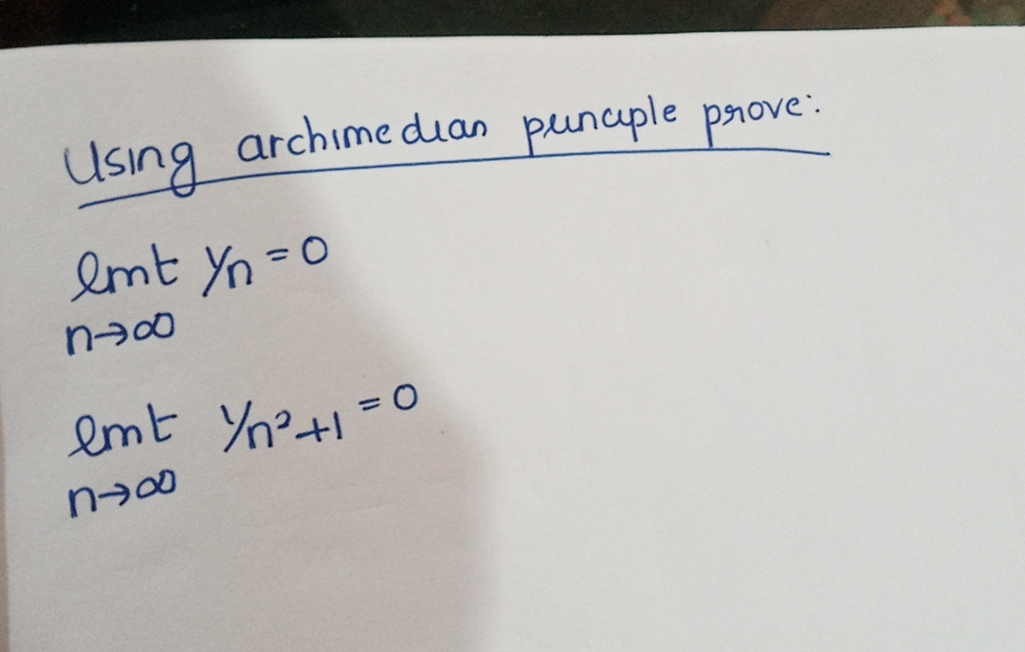 Using archimedian principle prove:
lmt 1/n = 0
n→∞
lmt 1/n²+1 = 0
n→∞